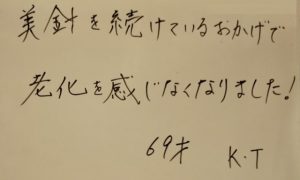 美針を続けているおかげで
老化を感じなくなりました!
69才 K.T